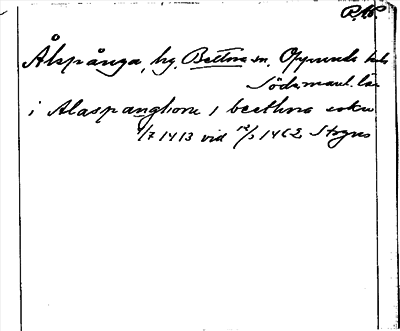 P. M.
Ålspånga, hg. Bettna sn. Oppunda hd.
Södermanl. län
i Alaspanghom i bæthna sokn
1/7 1413 vid 12/3 1462 Styf